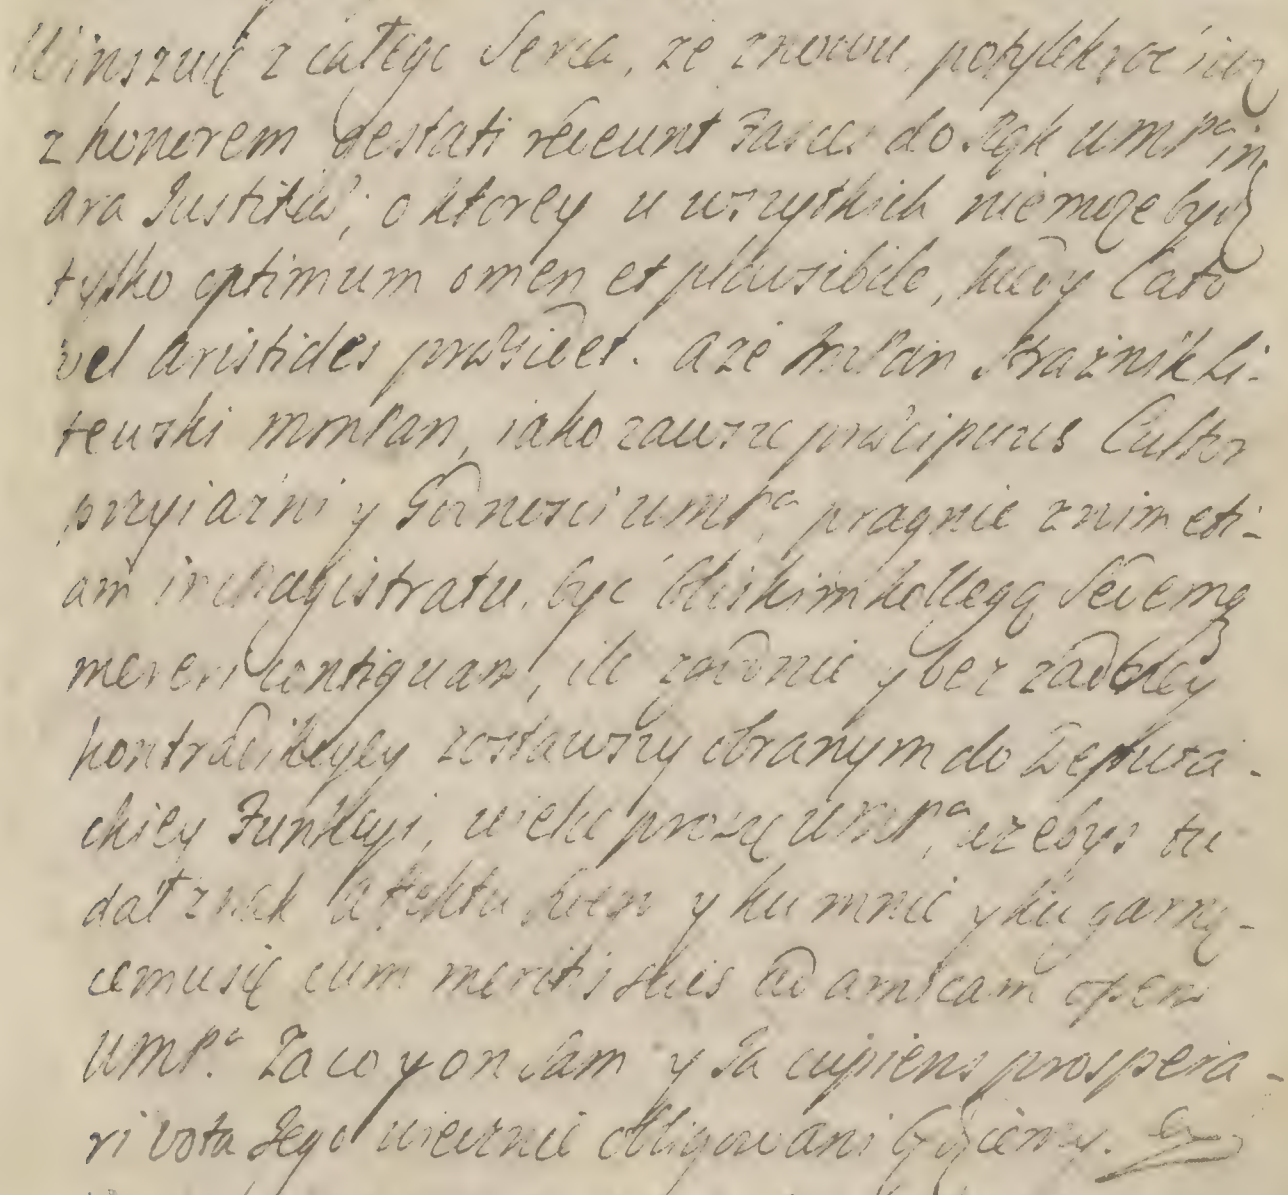 Winszuię z całego Serca, że znowu, potylekroć iuz
z honorem gestati redeunt Fasces do Rąk UMPa in
ara Justitiæ; o ktorey u wszytkich nie może bydz
tylko optimum omen et plausibile, kiedy Cato
vel Aristides præsidet. A że ImPan Strażnik Li-
tewski MmPan, iako zawsze præcipuus Cultor
przyiaźni y Godności UMPa, pragnie z nim eti-
am in Magistratu być bliskim kollegą Se
mereri contiguum, ile zgodnie y bez żadney
kontradikcyey zostawszy obranym do Deputa-
ckiey Funkcyi, wielce proszę UMPa, ażebyś tu
dał znak afektu swego y ku mnie y ku garną-
cemu się cum meritis suis ad amicam opem
UMPa. Za co y on Sam y Ja cupiens prospera-
ri vota Jego wiecznie obligowani będziemy.